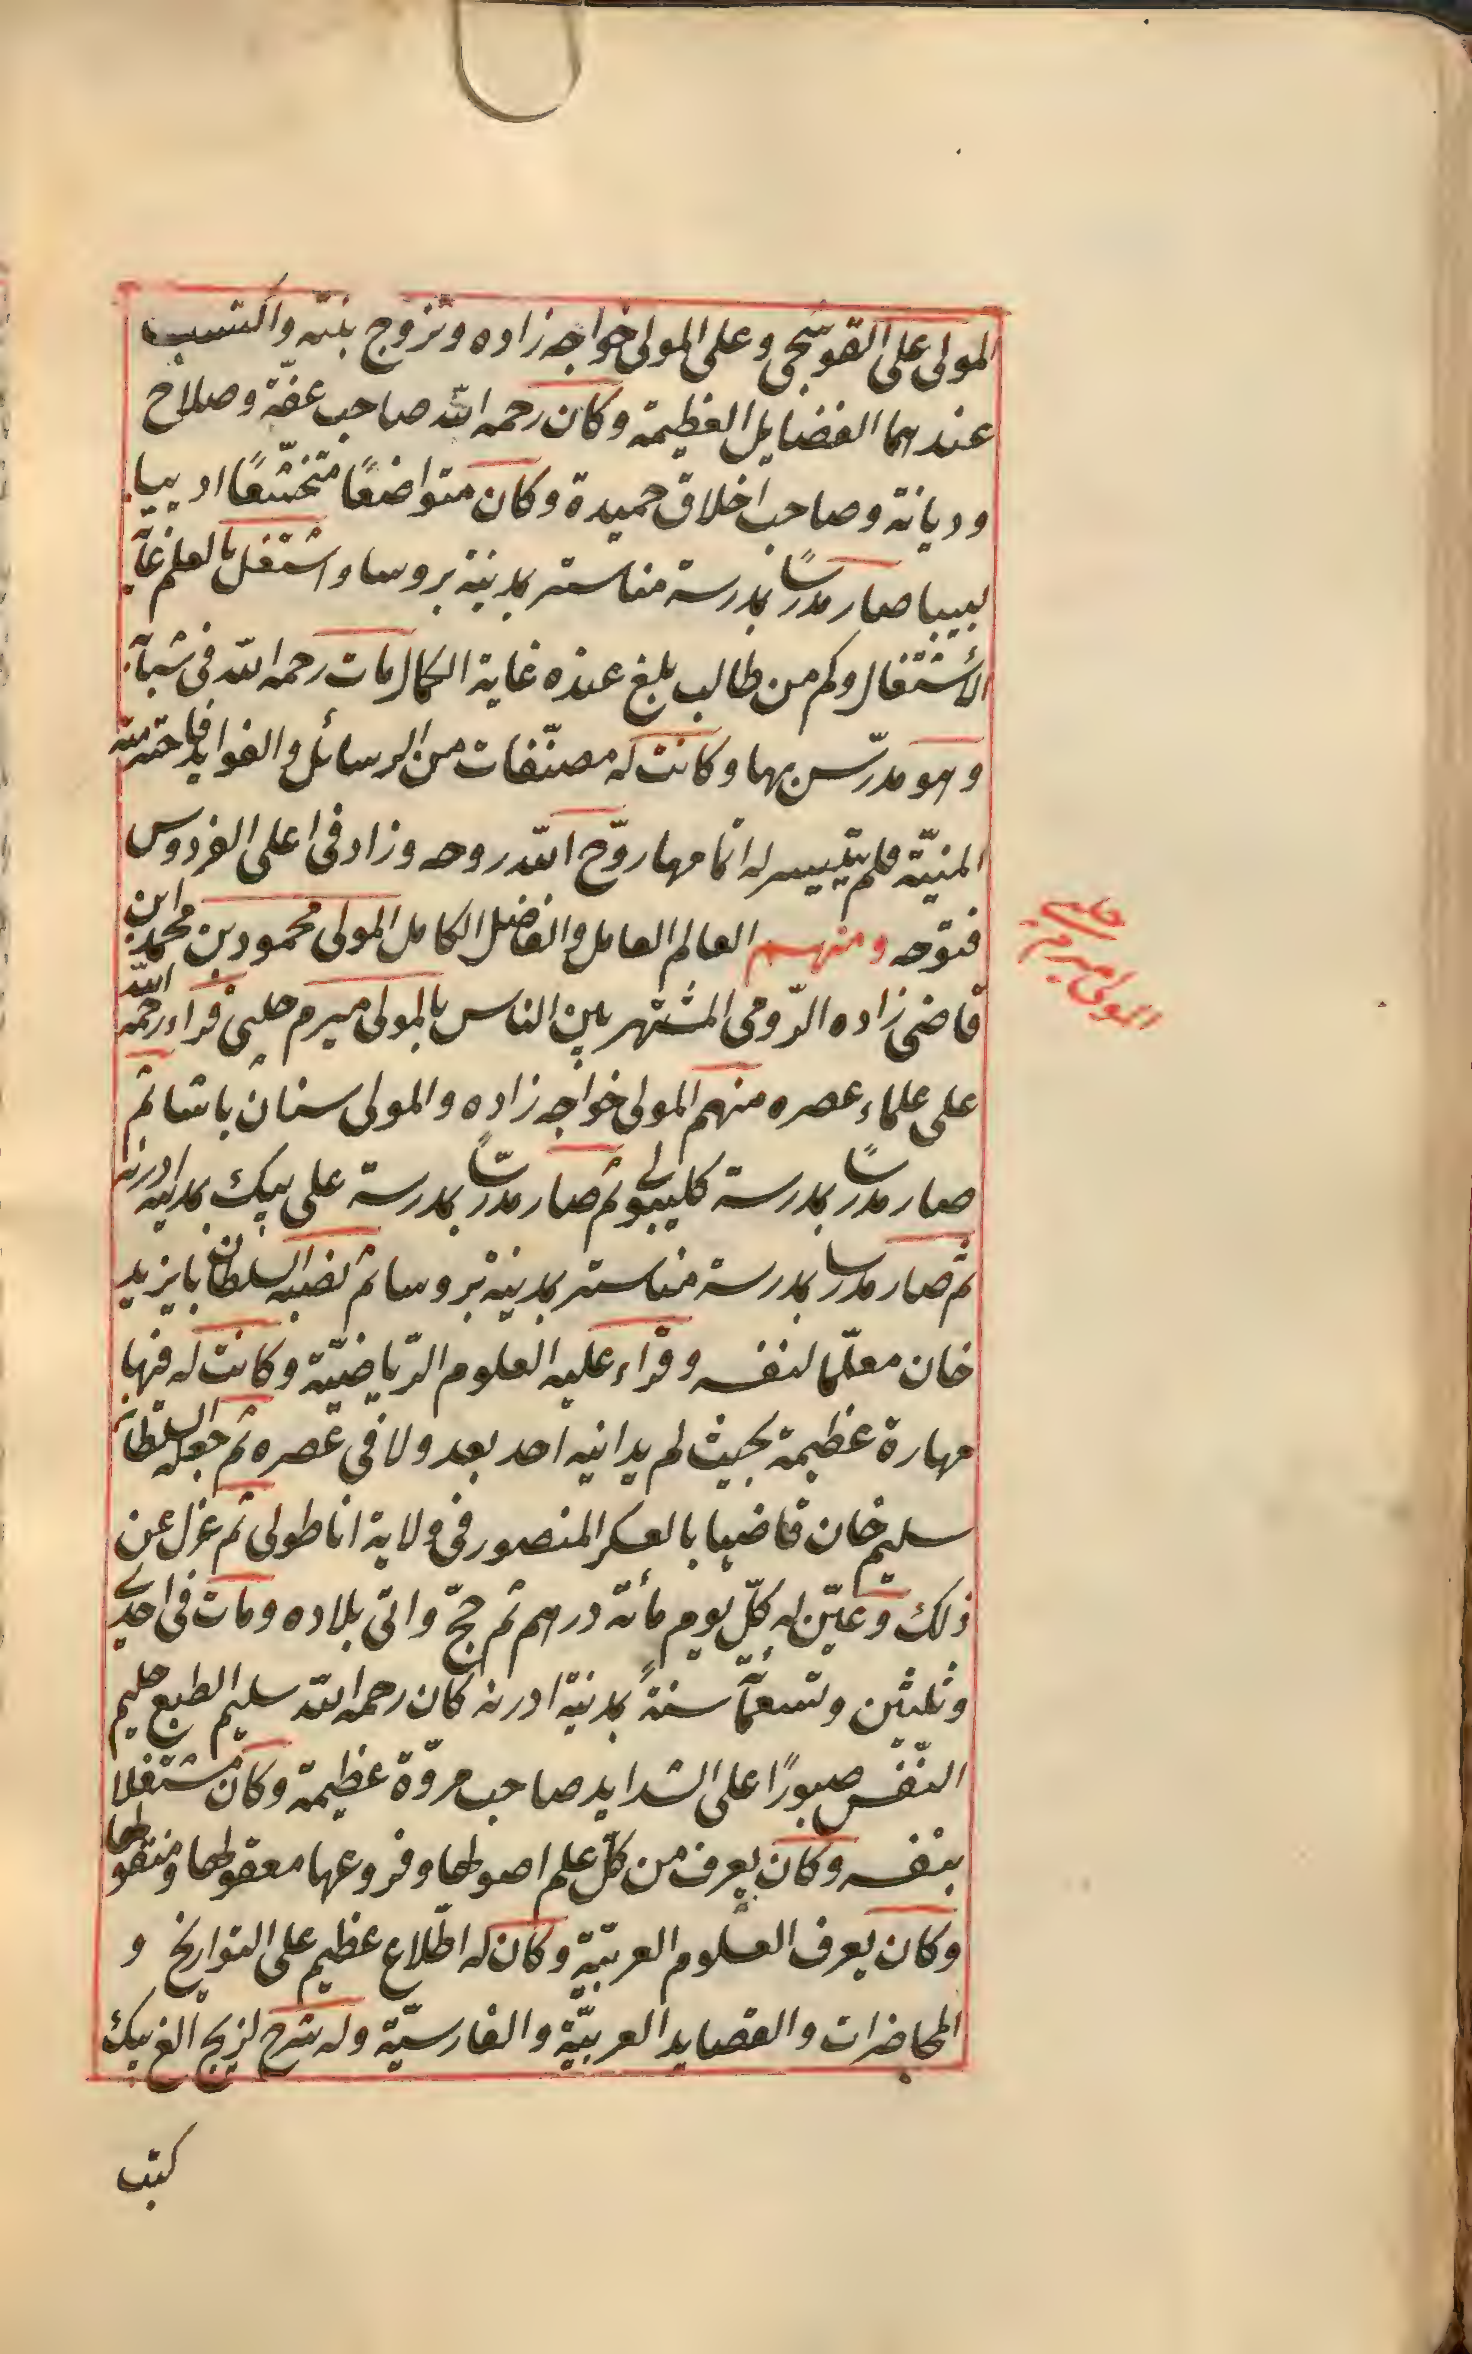 المولى على القوشجى وعلى المولى خواجه زاده وتزوج بنته واكتسب
عندهما الفضايل العظيمة وكان رحمه الله صاحب عفّة وصلاح
وديانة وصاحب اخلاق حميدة وكان متواضعًا متخشّعًا اديبا
لبيبا صار مدرسًا بمدرسة مناستر بمدينة بروسا واشتغل بالعلم غاية
الأشتغال وكم من طالب بلغ عنده غاية الكمال مات رحمه الله فى شبابه
وهو مدرّس بها وكانت له مصنّفات من الرسائل والفوايد فاخترمته
المنيّة فلم يتيسر له اتمامها روّح الله روحه وزاد فى اعلى الفردوس
فتوحه ومنهم العالم العامل والفاضل الكامل المولى محمود بن محمد ابن
قاضى زاده الرّومى المشتهر بين الناس بالمولى ميرم چلبى قراء رحمه الله
المولى ميرم چلبى
على علماء عصره منهم المولى خواجه زاده والمولى سنان باشا ثم
صار مدرسًا بمدرسة كليبولى ثم صار مدرسًا بمدرسة على بيك بمدينة ادرنه
ثم صار مدرسا بمدرسة مناستر بمدينة بروسا ثم نصبه السلطان بايزيد
خان معلّما لنفسه وقراء عليه العلوم الرّياضيّة وكانت له فيها
مهارة عظيمة بحيث لم يدانيه احد بعد ولا فى عصره ثم جعله السلطان
سليم خان قاضيا بالعسكر المنصور فى ولاية اناطولى ثم عزل عن
ذلك وعيّن له كلّ يوم مأئة درهم ثم حجّ واتى بلاده ومات فى احدى
وثلثين وتسعمأئة سنةً بمدينة ادرنه كان رحمه الله سليم الطبع حليم
النّفس صبورًا على الشدايد صاحب مروّة عظيمة وكان مشتغلا
بنفسه وكان يعرف من كلّ علم اصولها وفروعها معقولها ومنقولها
وكان يعرف العلوم العربيّة وكان له اطّلاع عظيم على التواريخ و
المحاضرات والقصايد العربيّة والفارسيّة وله شرح لزيج الغ بيك
كتب